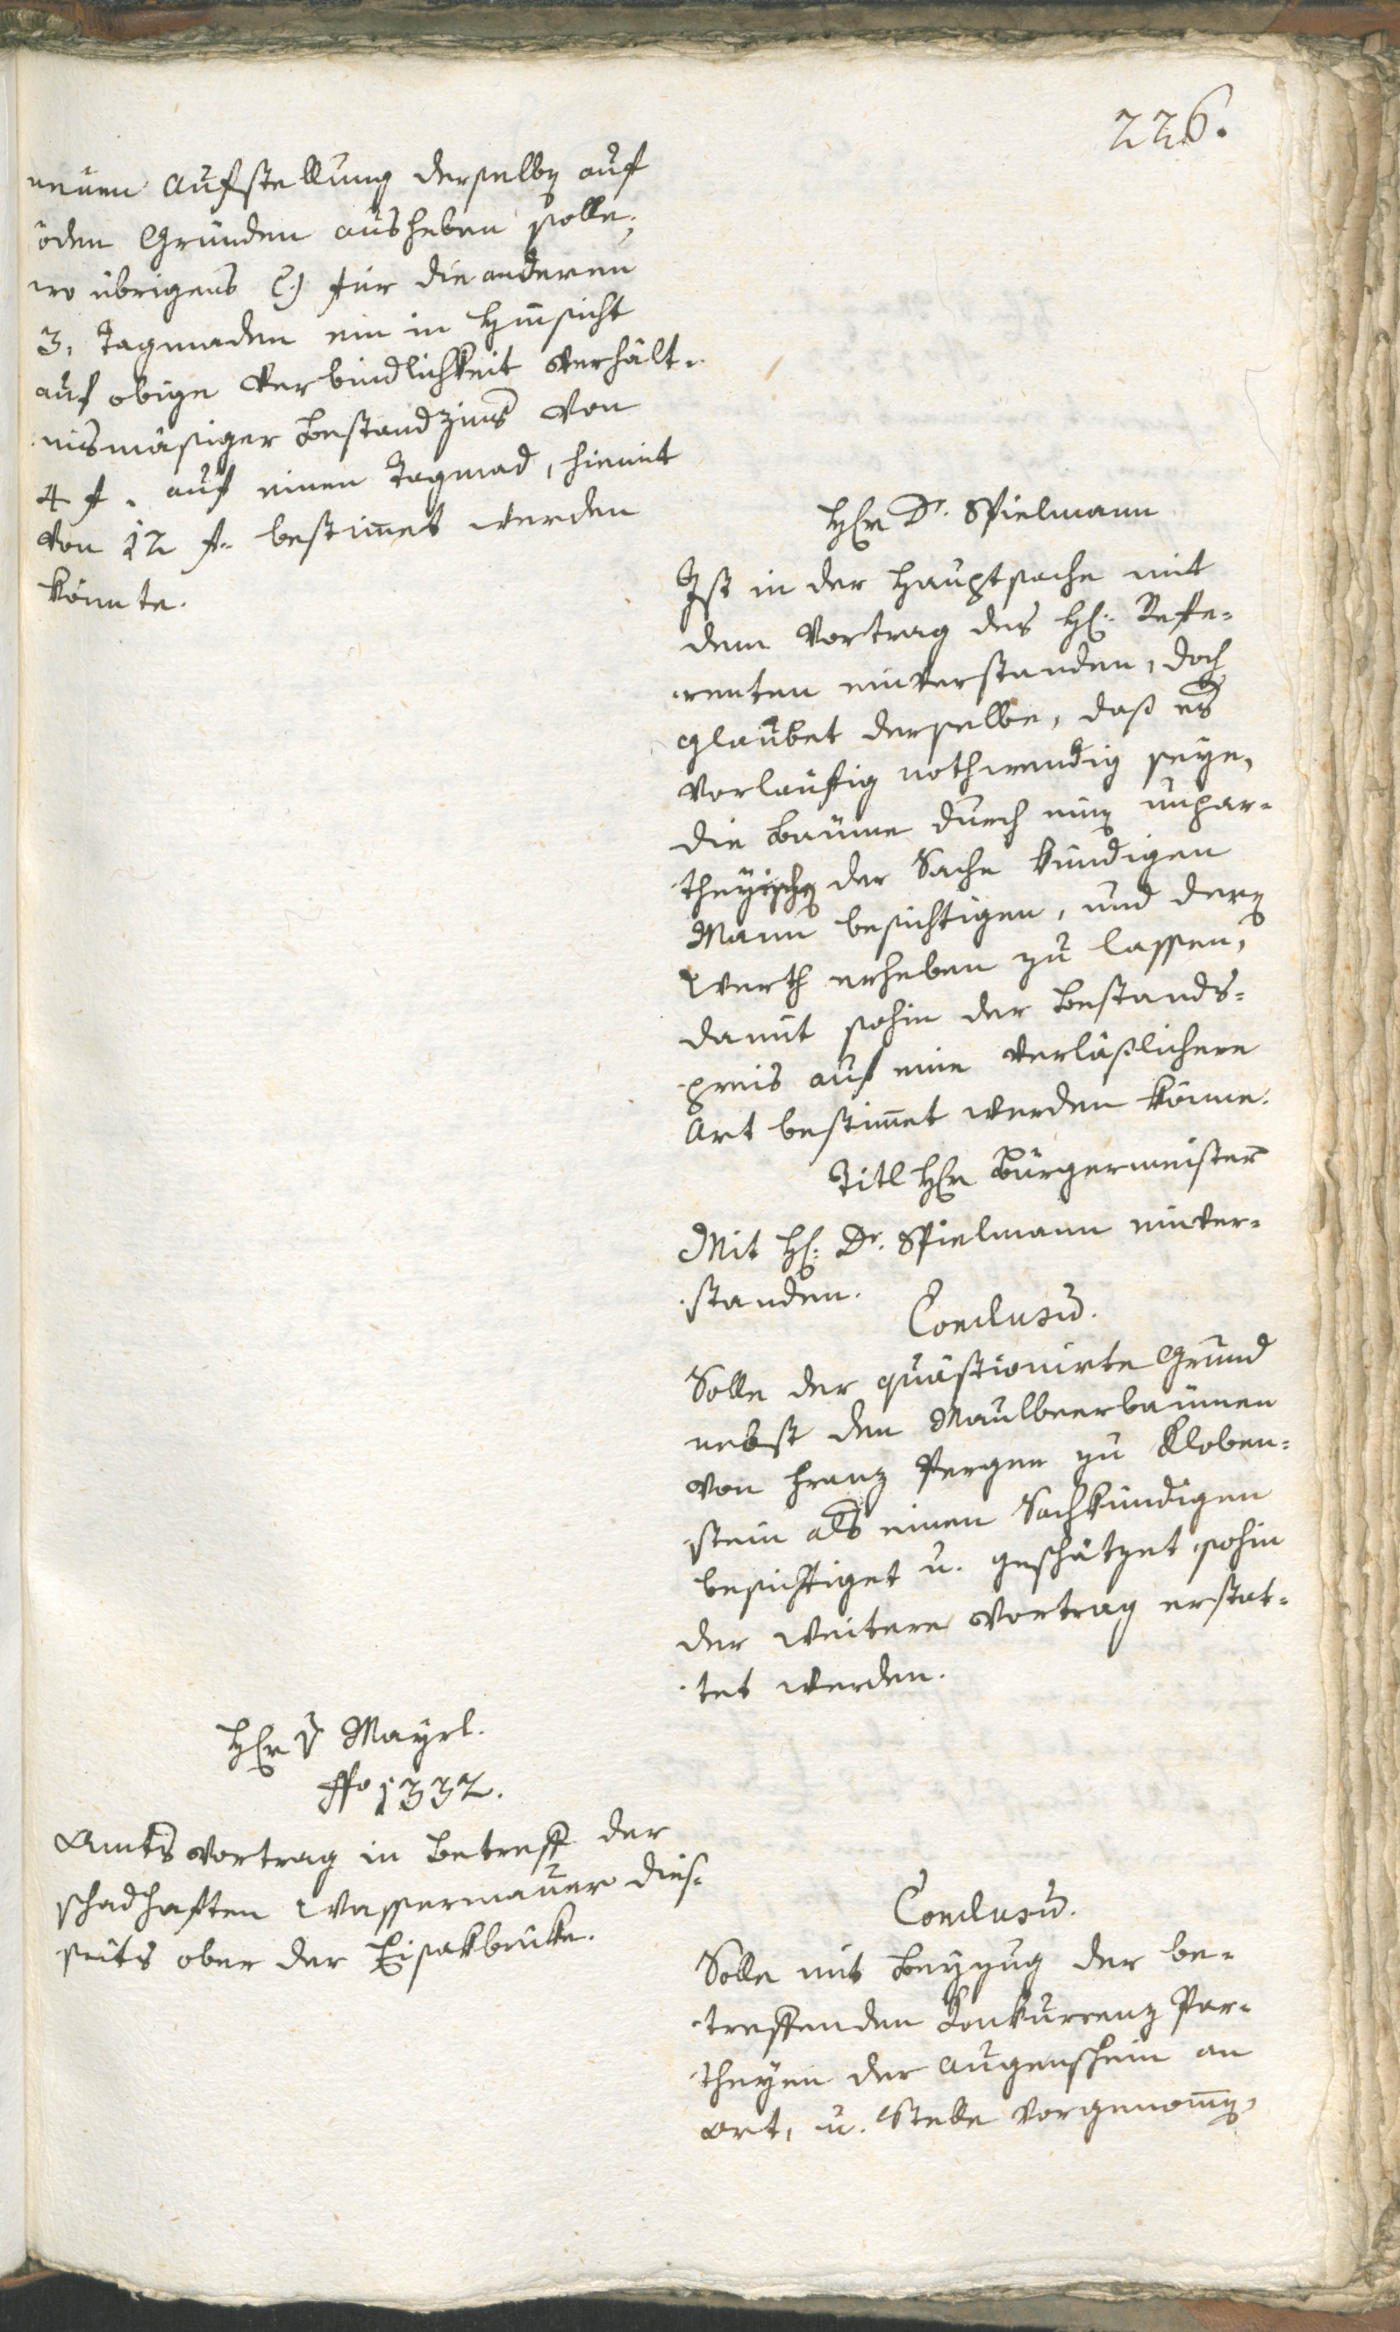 226.
neuen Aufstellung derselben auf
öden Gründen ausheben solle;
wo übrigens für die anderen
3. Tagmaden ein in Hinsicht
auf obige Verbindlichkeit verhält-
nismäsiger Bestandzins von
4 f. auf einen Tagmad, hiemit
von 12 f. bestim̅et werden
könnte.
Herr Dr. Spielmann
Ist in der Hauptsache mit
dem Vortrag des H: Refe-
renten einverstanden, doch
glaubet derselbe, daß es
vorläufig nothwendig seye,
die Bäume durch einen unpar-
theyischen der Sache kündigen
Mann besichtigen, und deren
Werth erheben zu lassen,
damit sohin der Bestands-
preis auf eine verläßlichere
Art bestim̅et werden könne.
Titl Herr Bürgermeister
Mit H: Dr. Spielmann einver-
standen.
Conclusū.
Solle der quästionirte Grund
nebst den Maulbeerbäumen
von Franz Perger zu Kloben-
stein als einen Sachkündigen
besichtiget u. geschätzet sohin
der weitere Vortrag erstat-
tet werden.
Herr v Mayrl.
No 1332.
Amts Vortrag in Betreff der
schadhaften Wassermauer dies-
seits ober der Eisakbrücke.
Conclusū.
Solle mit Beyzug der be-
treffenden Konkurrenz Par-
theyen der Augenschein an
Ort, u. Stelle vorgenom̅en,